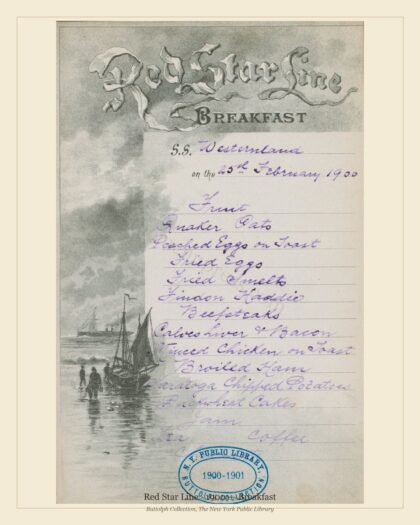 Red Star Line
BREAKFAST
S.S. Westernland
on the 25th February 1900
Fruit
Quaker Oats
Poached Eggs on Toast
Fried Eggs
Fried Smelts
Findon Haddie
Beefsteaks
Calves Liver & Bacon
Minced Chicken on Toast
Broiled Ham
Saratoga Chipped Potatoes
Buckwheat Cakes
Jam
Tea Coffee
N.Y. PUBLIC LIBRARY
1900-1901
BUTTOLPH COLLECTION
Red Star Line Breakfast
Buttolph Collection, The New York Public Library